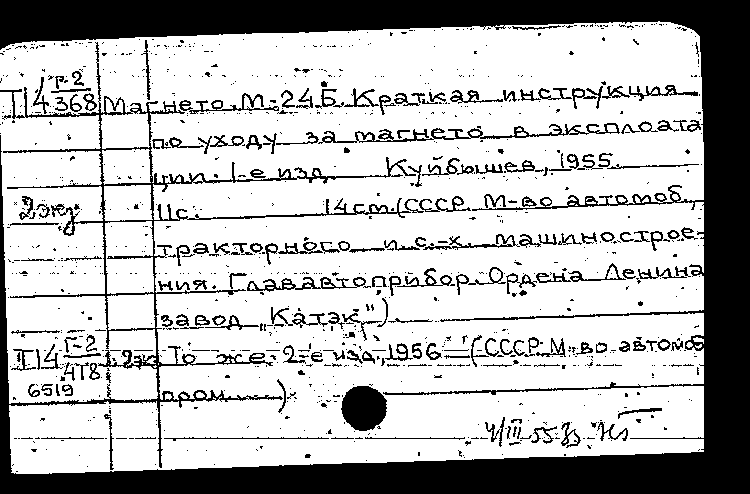 Т14 Г-2/368 Магнето М-24Б. Краткая инструкция
по уходу за магнето в эксплоата
ции. 1-е изд. Куйбышев, 1955.
2 экз 11с. 14см. (СССР. М-во автомоб.,
тракторного и с.-х. машинострое-
ния. Глававтоприбор. Ордена Ленина
завод „Катэк").
Т14 Г-2/478 2 эк. То же. 2-е изд., 1956 (СССР. М-во автомоб
6519 пром. ...)
4/III 55